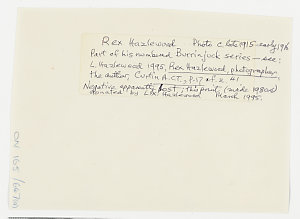 Rex Hazlewood Photo c late 1915 - early 1916
Part of his numbered Burrinjuck series — see:
L. Hazlewood 1995, Rex Hazlewood, photographer
the author, Curtin A.C.T., p.17
Negative apparently lost, this print (made 1980s)
donated by Lex Hazlewood March 1995.
ON 165